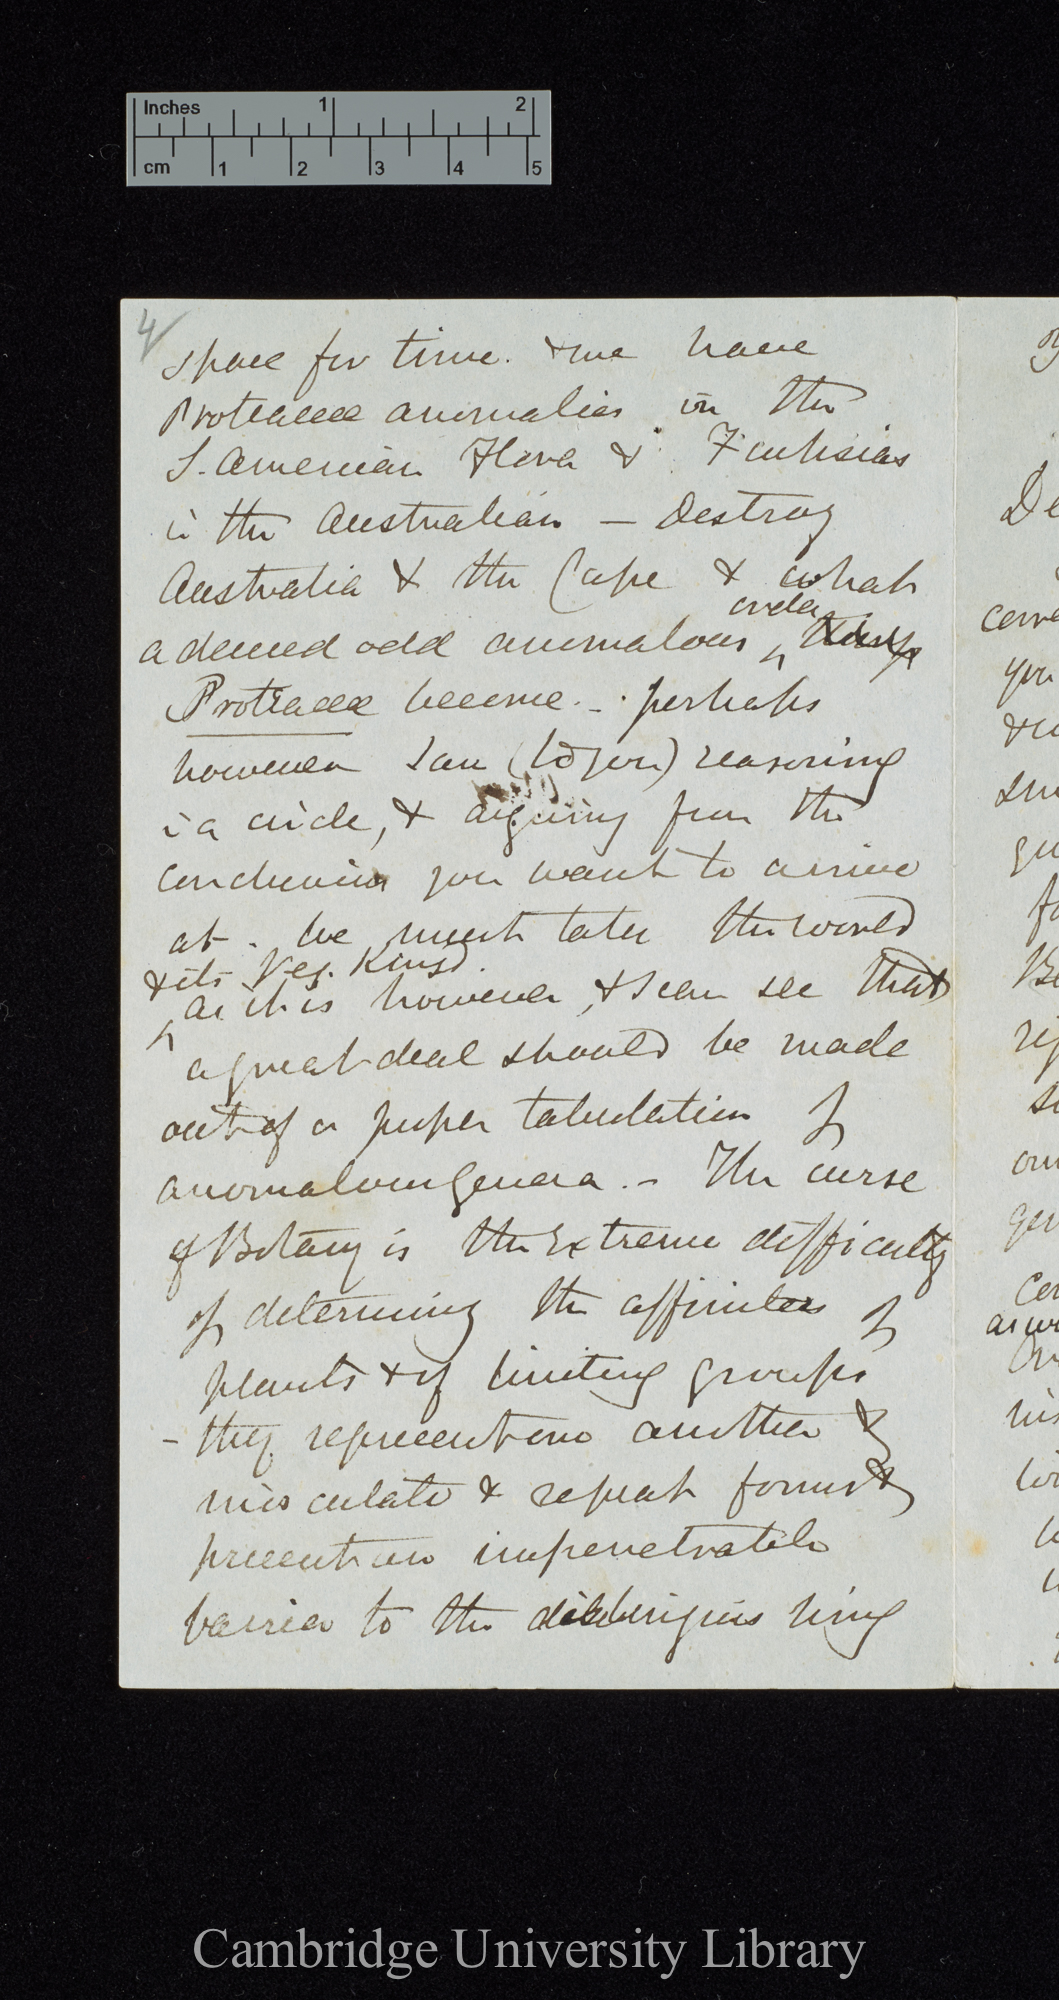 Inches 1 2
cm 1 2 3 4 5
4
space for time. & we have
Proteaceæ anomalies in the
S. American Flora & Fuchsias
in the Australian — Destroy
Australia & the Cape & what
order
a deuced odd anomalous
Proteaceæ become. — perhaps
however I am (to you) reasoning
in a circle, & arguing from the
conclusion you want to arrive
at. We must take the world
& its Veg. Kingd.
as it is however, & I can see that
a great deal should be made
out of a proper tabulation of
anomalous genera. — The curse
of Botany is the extreme difficulty
of determining the affinities of
plants & of limiting groups
— they represent one another &
inosculate & repeat forms &
present an impenetrable
barrier to the
De
you
Cambridge University Library